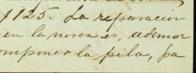 1125. La reparacion
en la noria es, ademas
componer la pila, pa